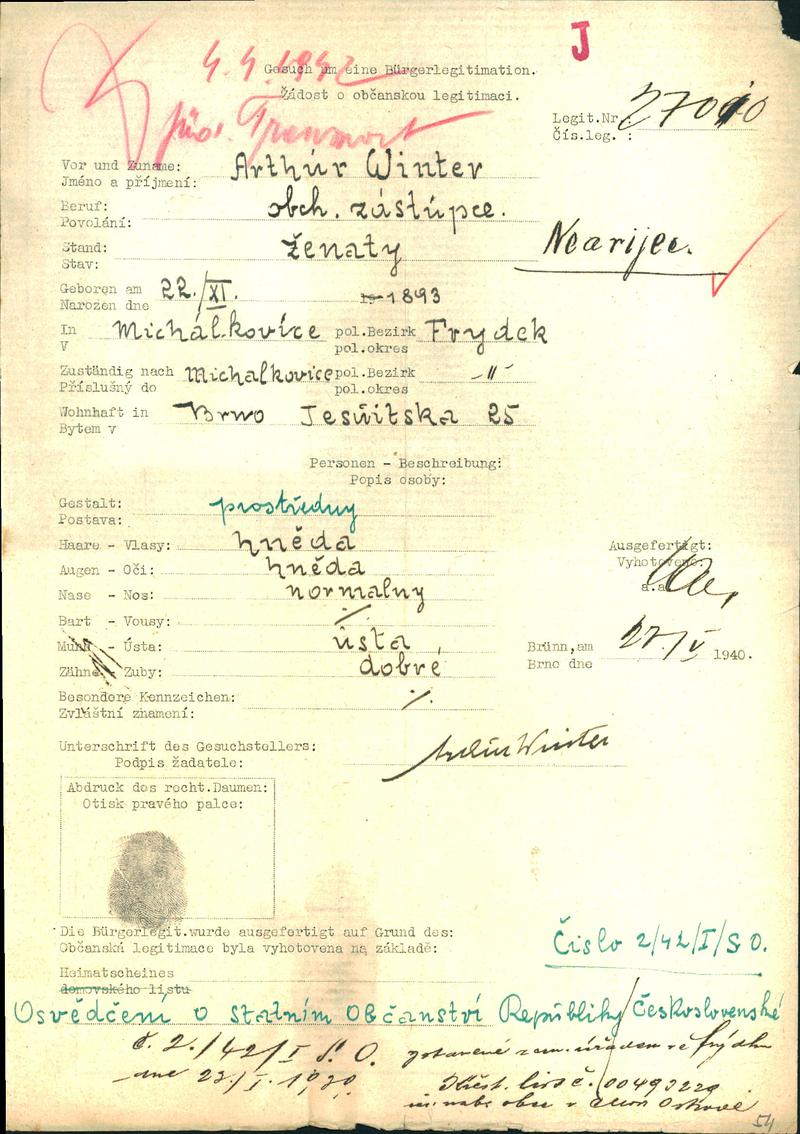 J
4.4.1942
Gesuch um eine Bürgerlegitimation.
Žádost o občanskou legitimaci.
Legit.Nr
Čís.leg. : 27010
Vor und Zuname: Arthúr Winter
Jméno a příjmení:
Beruf: obch. zástúpce.
Povolání:
Stand: ženatý
Stav:
Nearijec.
Geboren am 22./XI. 19 1893
Narozen dne
In Michálkovíce pol.Bezirk Frydek
V pol.okres
Zuständig nach Michalkovice pol.Bezirk -"-
Příslušný do pol.okres
Wohnhaft in Brno Jesúitska 25
Bytem v
Personen - Beschreibung:
Popis osoby:
Gestalt: prostředny
Postava:
Haare - Vlasy: hněda
Augen - Oči: hněda
Nase - Nos: normalny
Bart - Vousy: /
Mund - Ústa: ústa
Zähne - Zuby: dobré
Ausgefertigt:
Vyhotoveno:
a.a.
Brünn,am 27./V 1940.
Brno dne
Besondere Kennzeichen: ./.
Zvláštní znamení:
Unterschrift des Gesuchstellers: Winter
Podpis žadatele:
Abdruck des recht.Daumen:
Otisk pravého palce:
Die Bürgerlegit.wurde ausgefertigt auf Grund des:
Občanská legitimace byla vyhotovena na základě:
Číslo 2/42/I/S O.
Heimatscheines
domovského listu
Osvědčení o statním Občanství Repúbliky Československé
č. 2./42/I S. O.
dne 23./I. 1939.
Křest. list č. 00493229
54